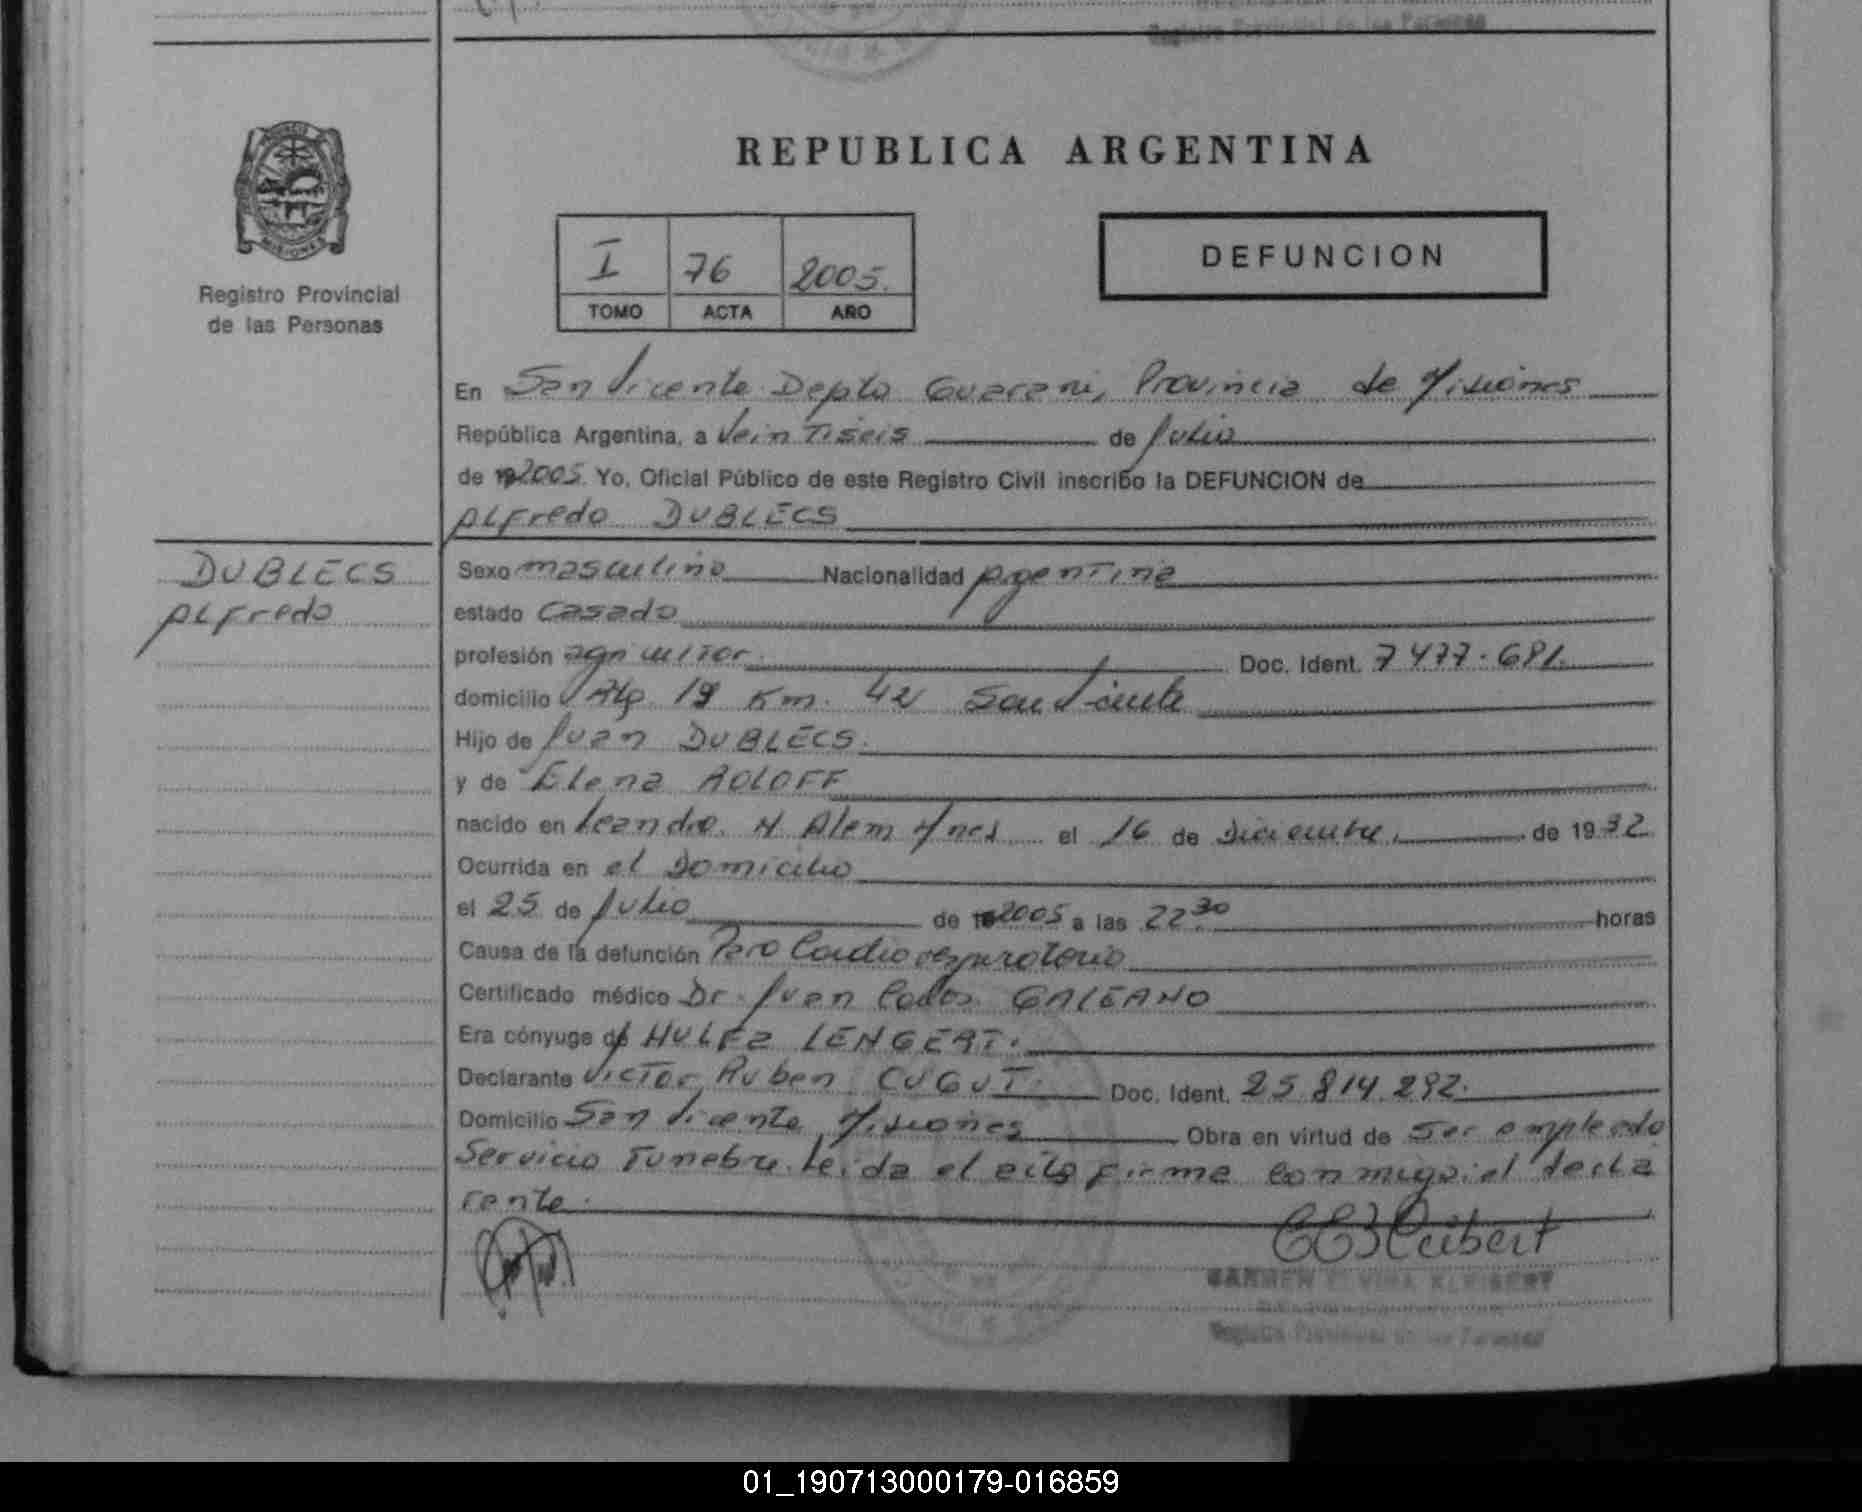 Registro Provincial de las Personas
REPUBLICA ARGENTINA
MISIONES
Registro Provincial
de las Personas
I 76 2005.
TOMO ACTA AÑO
DEFUNCION
En San Vicente Depto Guarani, Provincia de Misiones
República Argentina, a Veintiseis de Julio
de 19 2005. Yo, Oficial Público de este Registro Civil inscribo la DEFUNCION de
Alfredo DUBLECS
DUBLECS
Alfredo
Sexo masculino Nacionalidad Argentina
estado Casado
profesión agricultor. Doc. Ident. 7477.681.
domicilio Km. 42 San Vicente
Hijo de Juan DUBLECS.
y de Elena ROLOFF
nacido en Leandro N Alem Mnes el 16 de Diciembre de 1932
Ocurrida en el Domicilio
el 25 de Julio de 2005 a las 22.30 horas
Causa de la defunción Paro Cardio respiratorio
Certificado médico Dr. Juan Carlos GALEANO
Era cónyuge de HULFA LENGERT.
Declarante Victor Ruben CUGUT. Doc. Ident. 25.814.292.
Domicilio San Vicente Misiones Obra en virtud de Ser empleado
Servicio Funebre. Leida el acta firma conmigo: el decla
rante.
CARMEN ELVIRA KLEIBERT
Registro Provincial de las Personas
01_190713000179-016859